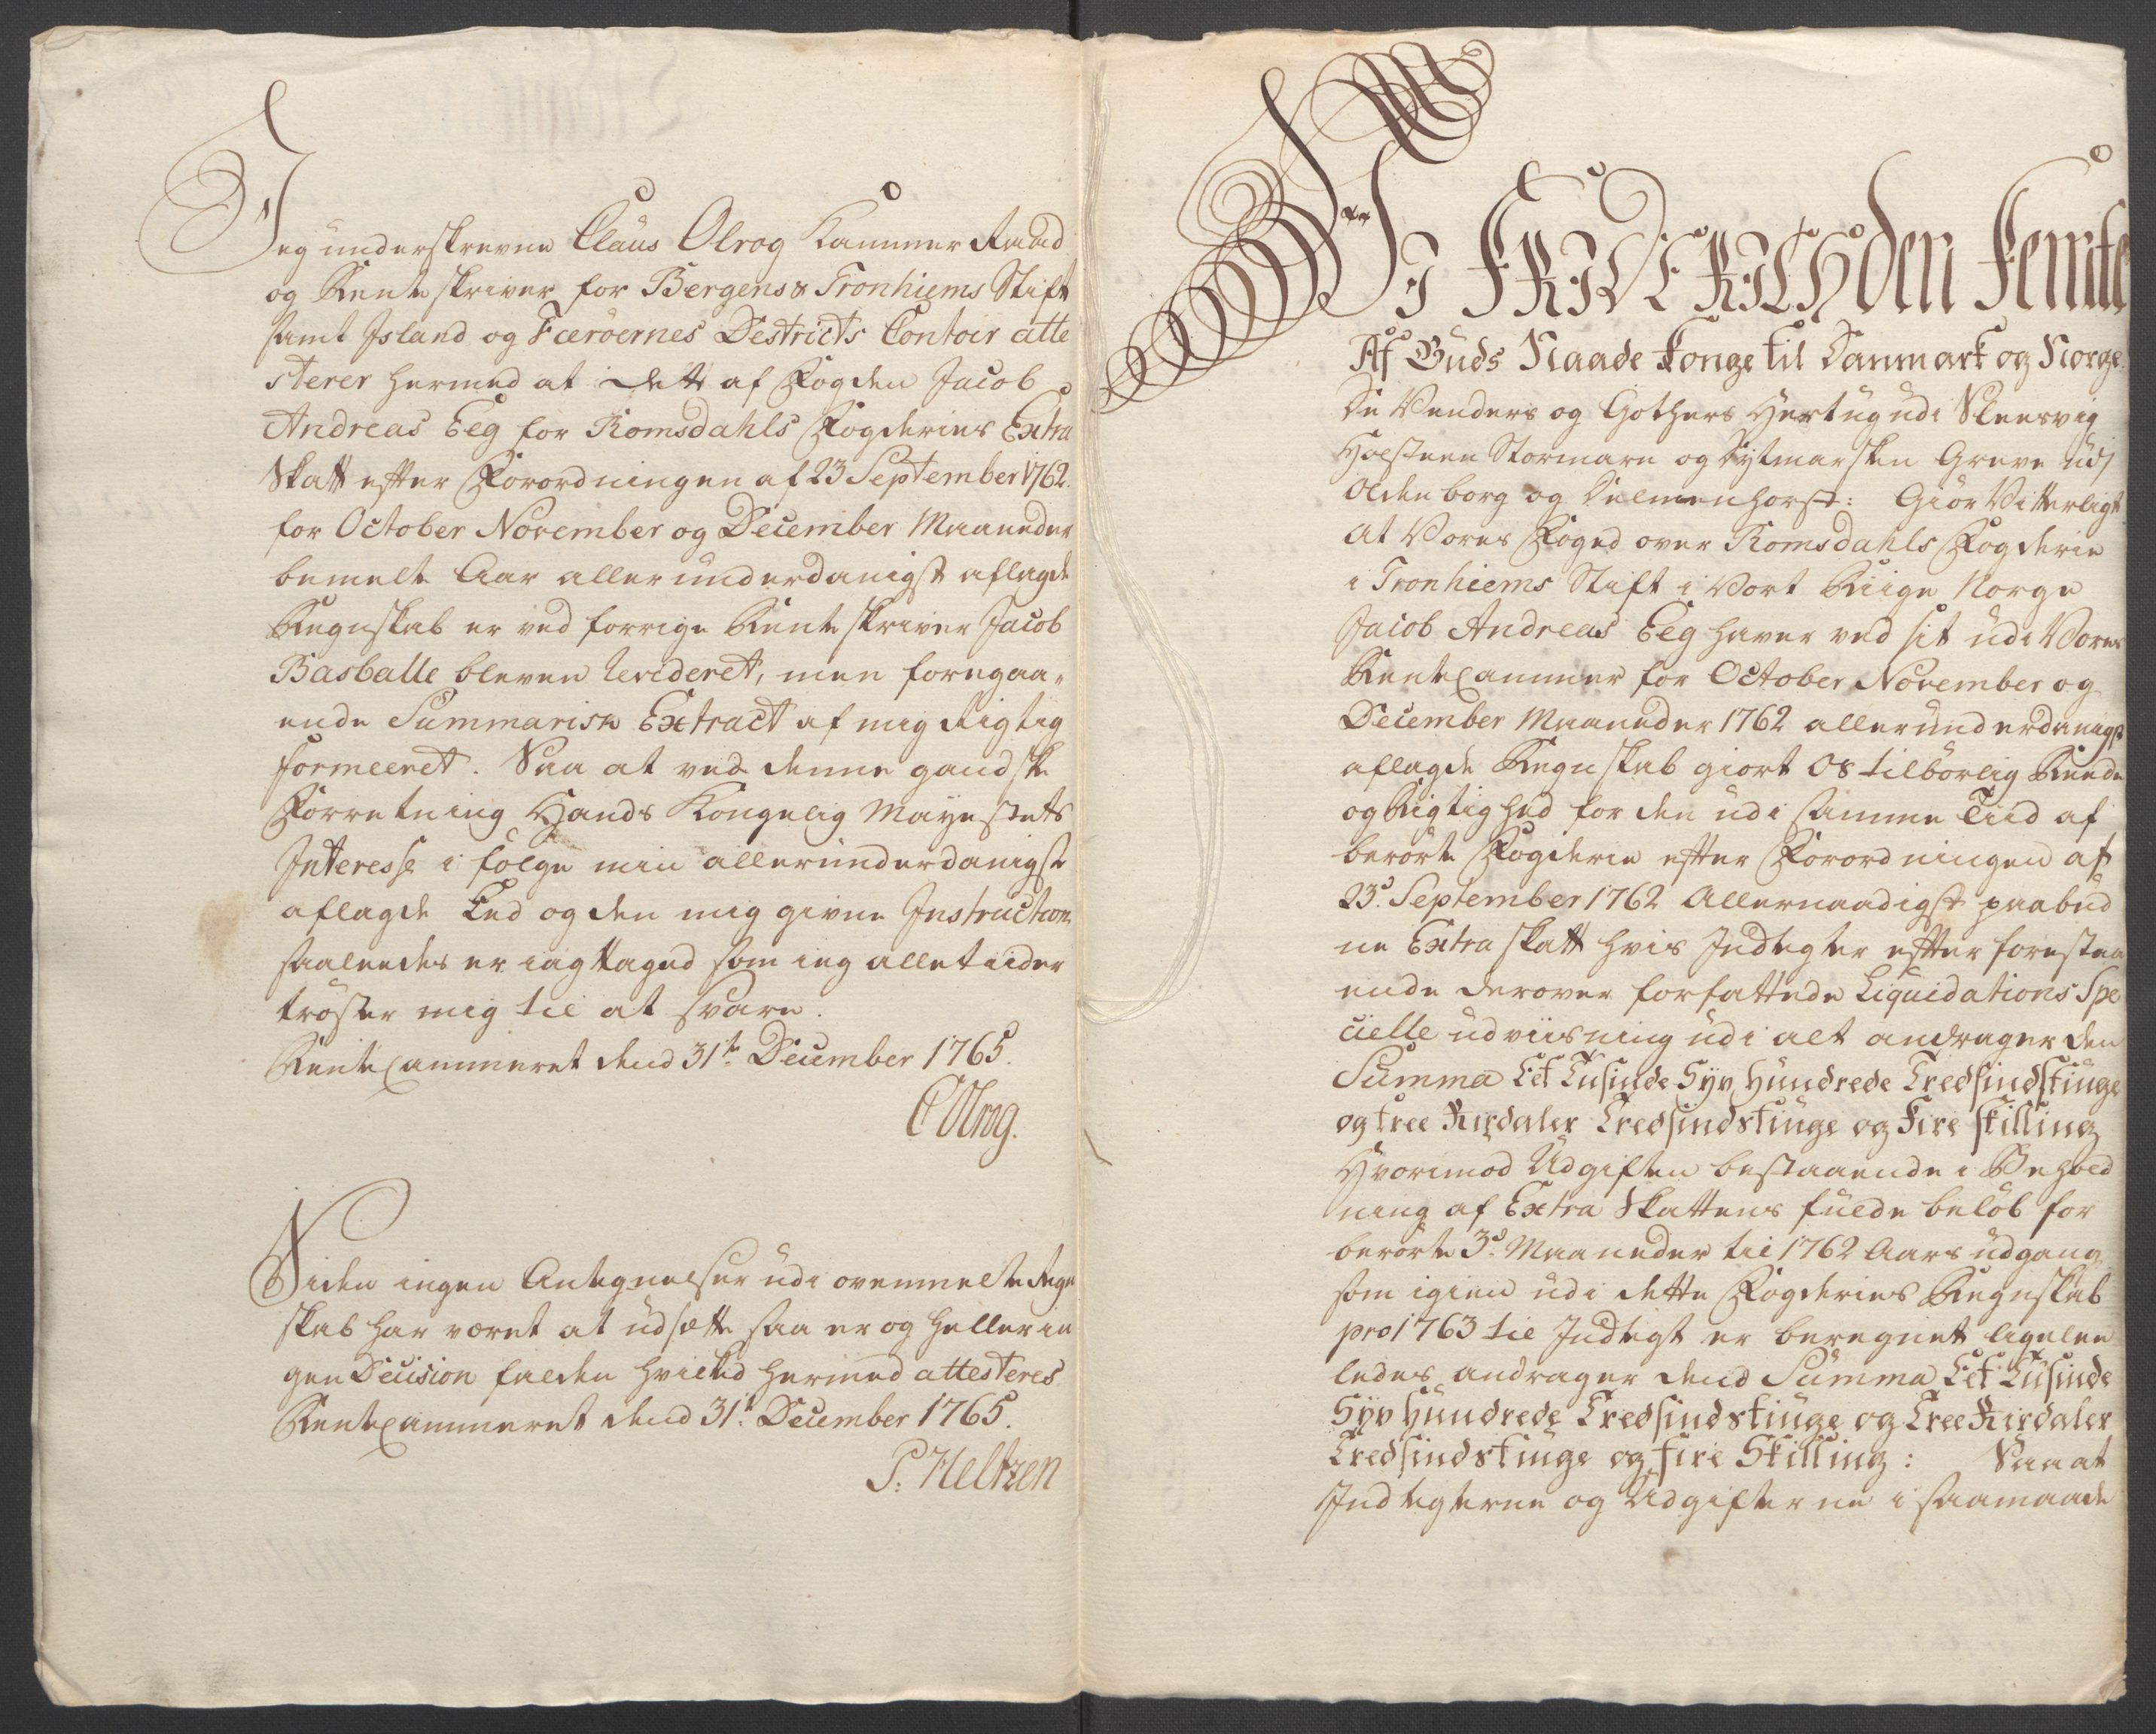 Jeg underskrevne Claus Olrog Kammer Raad
og Rente skriver for Bergens & Tronhiems Stift
samt Island og Færöernes Destricts Contoir atte
sterer hermed at dette af Fogden Jacob
Andreas Eeg for Romsdahls Fogderies Extra
Skatt efter Forordningen af 23 September 1762.
for October November og December Maaneder
bemelte Aar allerunderdanigst aflagde
Regnskab er ved forrige Rente skriver Jacob
Basballe bleven Revideret, men foregaa-
ende Summarisk Extract af mig rigtig
formeeret. Saa at ved denne gandske
Forretning Hands Kongelig Mayestets
Interesse i fölge min allerunderdanigst
aflagde Eed og den mig givne Instruction
saaledes er iagttaged som ieg alletiider
tröster mig til at svare.
RenteCammeret dend 31te December 1765.
C Olrog.
Siden ingen Antegnelser udi ovenmelte Regn
skab har været at udsætte saa er og heller in
gen Decision falden hvilked hermed attesteres
RenteCammeret dend 31te December 1765.
P. Heltzen
Wi FRIDERICH den Femte
Af Guds Naade Konge til Danmark og Norge
De Venders og Gothers Hertug udi Slesvig
Holsteen Stormarn og Dytmarsken Greve udj
Oldenborg og Delmenhorst: Giör Vitterligt
At Vores Foged over Romsdahls Fogderie
i Tronhiems Stift i Vort Riige Norge
Jacob Andreas Eeg haver ved sit udi Vores
RenteCammer for October November og
December Maaneder 1762 allerunderdanigst
aflagde Regnskab giort Os tilbörlig Reede
og Rigtighed for den udi samme Tiid af
berörte Fogderie efter Forordningen af
23d. September 1762 Allernaadigst paabud
ne Extra skatt hvis Indtegter efter forestaa
ende derover forfattede Liquidations Spe
cielle udviisning udi alt andrager den
Summa Eet Tusinde Syv Hundrede Tredsindstiuge
og tree Rixdaler Tredsindstiuge og Fire skilling
Hvorimod Udgiften bestaaende i Behold
ning af Extra Skattens fulde belöb for
berörte 3de Maaneder til 1762 Aars udgang
som igien udi dette Fogderies Regnskab
pro 1763 til Indtegt er beregnet ligelee
ledes andrager dend Summa Eet Tusinde
Syv Hundrede Tredsindstiuge og Tree Rixdaler
Tredsindstiuge og fire Skilling: Saa at
Indtegterne og Udgifterne i saamaade